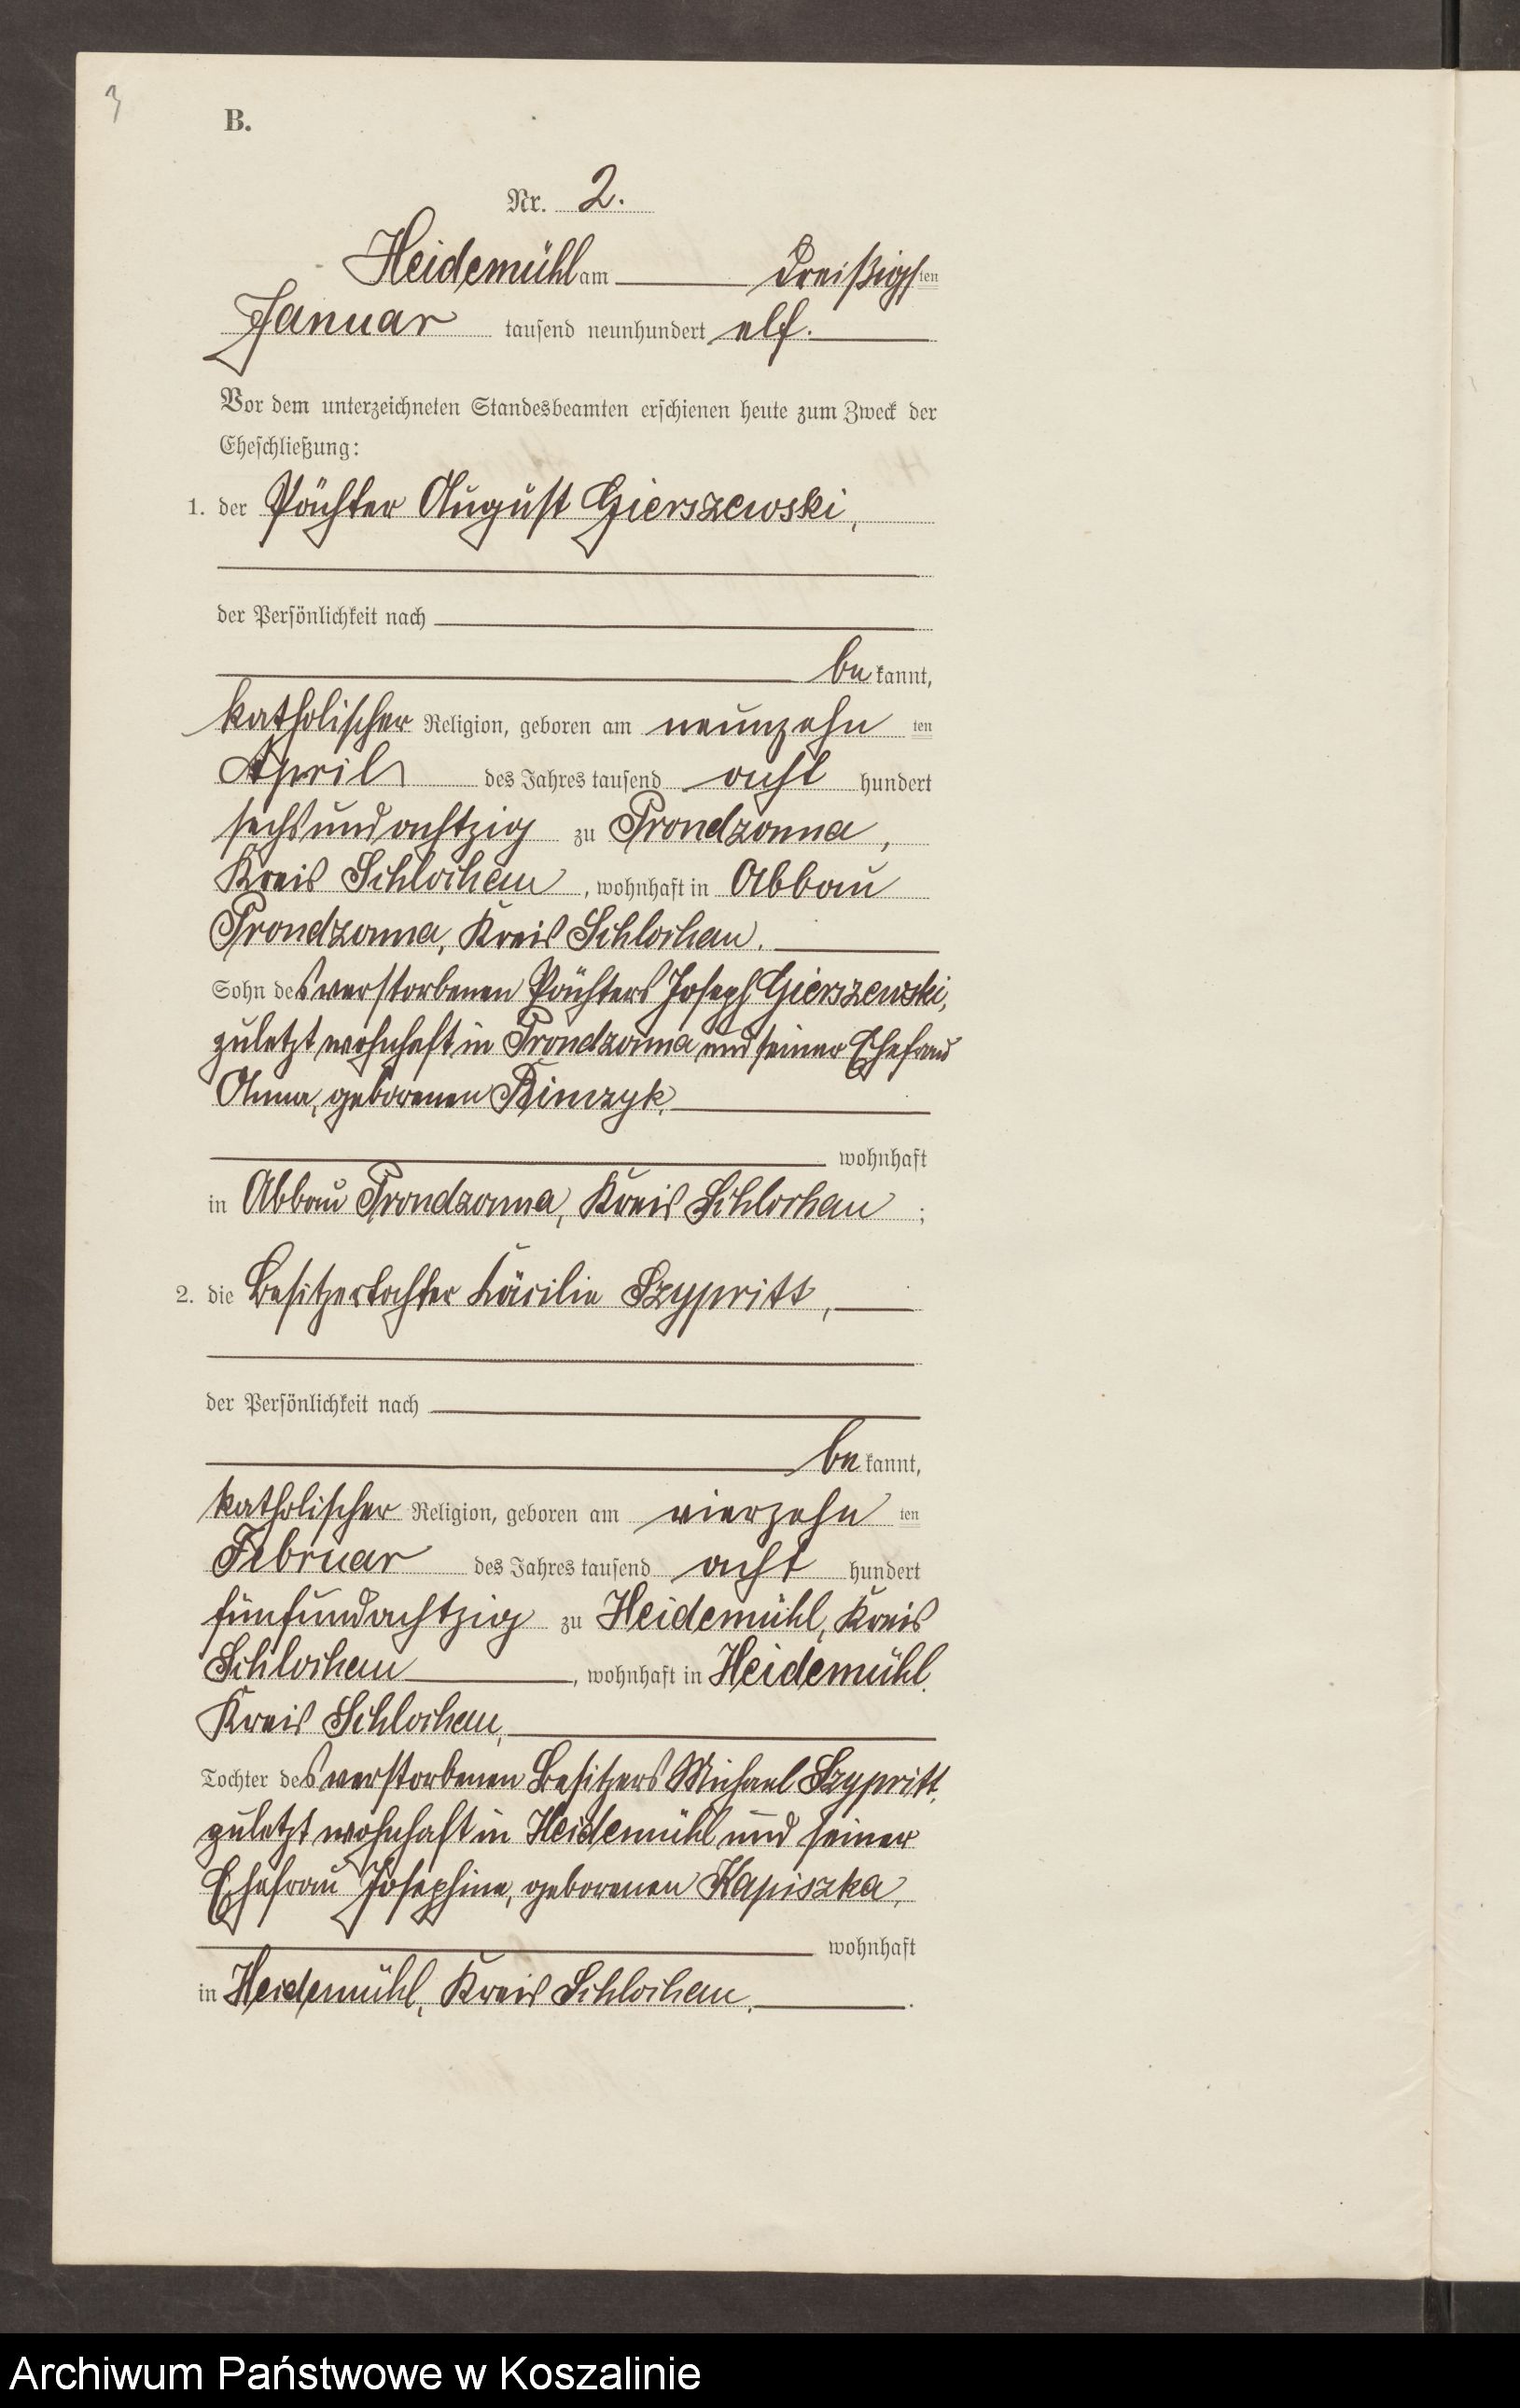 3
B.
Nr. 2.
Heidemühl am dreißigsten
Januar tausend neunhundert elf.
Vor dem unterzeichneten Standesbeamten erschienen heute zum Zweck der
Eheschließung:
1. der Pächter August Gierszewski,
der Persönlichkeit nach
bekannt,
katholischer Religion, geboren am neunzehnten
April des Jahres tausend acht hundert
sechsundachtzig zu Prondzonna,
Kreis Schlochau, wohnhaft in Abbau
Prondzonna, Kreis Schlochau.
Sohn des verstorbenen Pächters Joseph Gierszewski,
zuletzt wohnhaft in Prondzonna und seiner Ehefrau
Anna, geborenen
wohnhaft
in Abbau Prondzonna, Kreis Schlochau;
2. die Besitzertochter Cäcilie Szypritt,
der Persönlichkeit nach
bekannt,
katholischer Religion, geboren am vierzehnten
Februar des Jahres tausend acht hundert
fünfundachtzig zu Heidemühl, Kreis
Schlochau, wohnhaft in Heidemühl,
Kreis Schlochau,
Tochter des verstorbenen Besitzers Michael Szypritt,
zuletzt wohnhaft in Heidemühl und seiner
Ehefrau Josephine, geborenen Kapiszka,
wohnhaft
in Heidemühl, Kreis Schlochau.
Archiwum Państwowe w Koszalinie